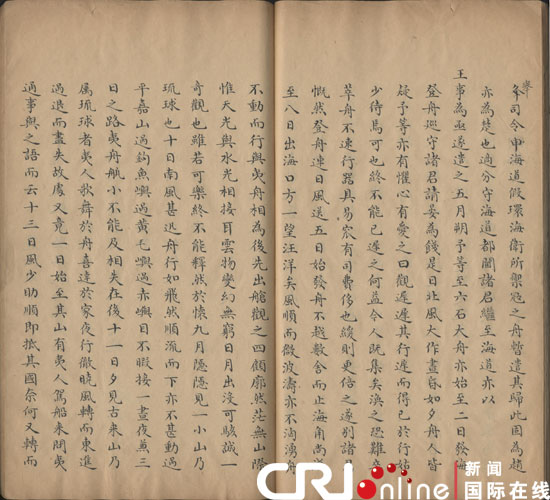 司令申海道假環海衛所禦寇之舟暫遣其歸此因為趙
亦為楚也適分守海道都閫諸君繼至海道亦以
王事為亟遂遣之五月朔予等至六石大舟亦始至二日發海
登舟巡守諸君請妥為餞是日北風大作晝昏如夕舟人皆
疑予等亦有懼心有愛之曰觀遲遲其行遲而得已於行姑
少待焉可也終不能已遲之何益令人既集矣渙之恐難
萃舟不速行器具易窳有司費侈也緩則更倍之遂別諸
慨然登舟連日風逆五日始發舟不越數舍而止海角尚
至八日出海口方一望汪洋矣風順而微波濤亦不洶湧舟
不動而行與夷舟相為後先出艙觀之四顧廓然茫無山際
惟天光與水光相接耳雲物變幻無窮日月出沒可駭誠一
奇觀也雖若可樂終不能釋然於懷九月隱隱見一小山乃
琉球也十日南風甚迅舟行如飛然順流而下亦不甚動過
平嘉山過釣魚嶼過黃毛嶼過赤嶼目不暇接一晝夜兼三
日之路夷舟帆小不能及相失在後十一日夕見古米山乃
属琉球者夷人歌舞於舟喜達於家夜行徹曉風轉而東進
過退而盡失故處又竟一日始至其山有夷人駕船來問夷
通事與之語而云十三日風少助順即抵其國奈何又轉而
CRI online 新闻
国际在线